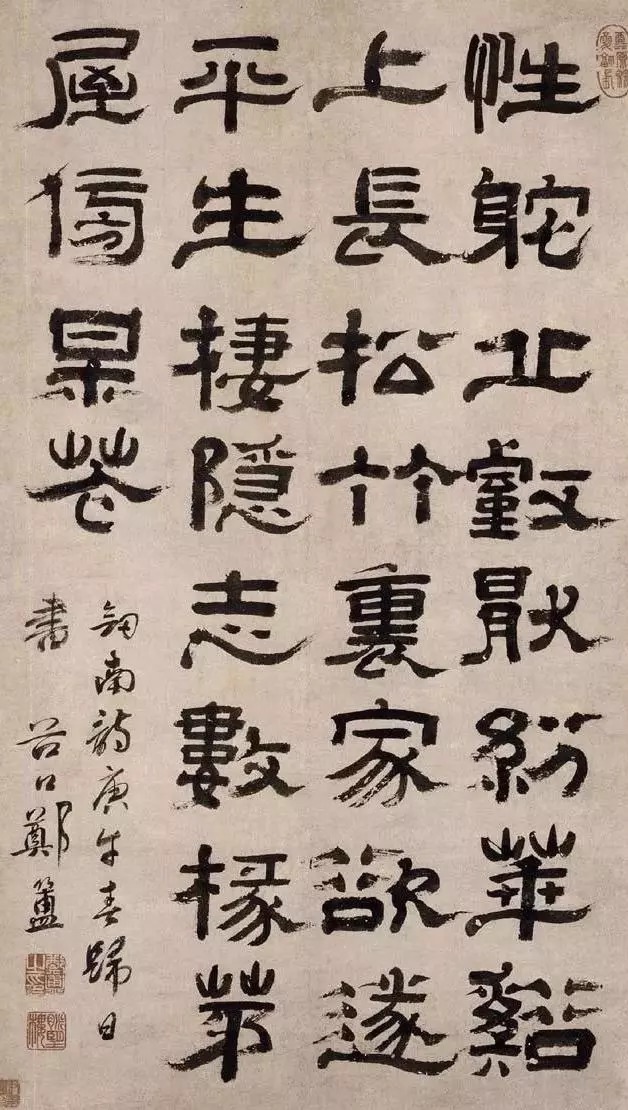 性躭丘叡厭紛華谿
上長松竹裏家欲遂
平生棲隱志數椽茅
屋傍某花
劒南詩庚午春歸日
書 谷口鄭簠